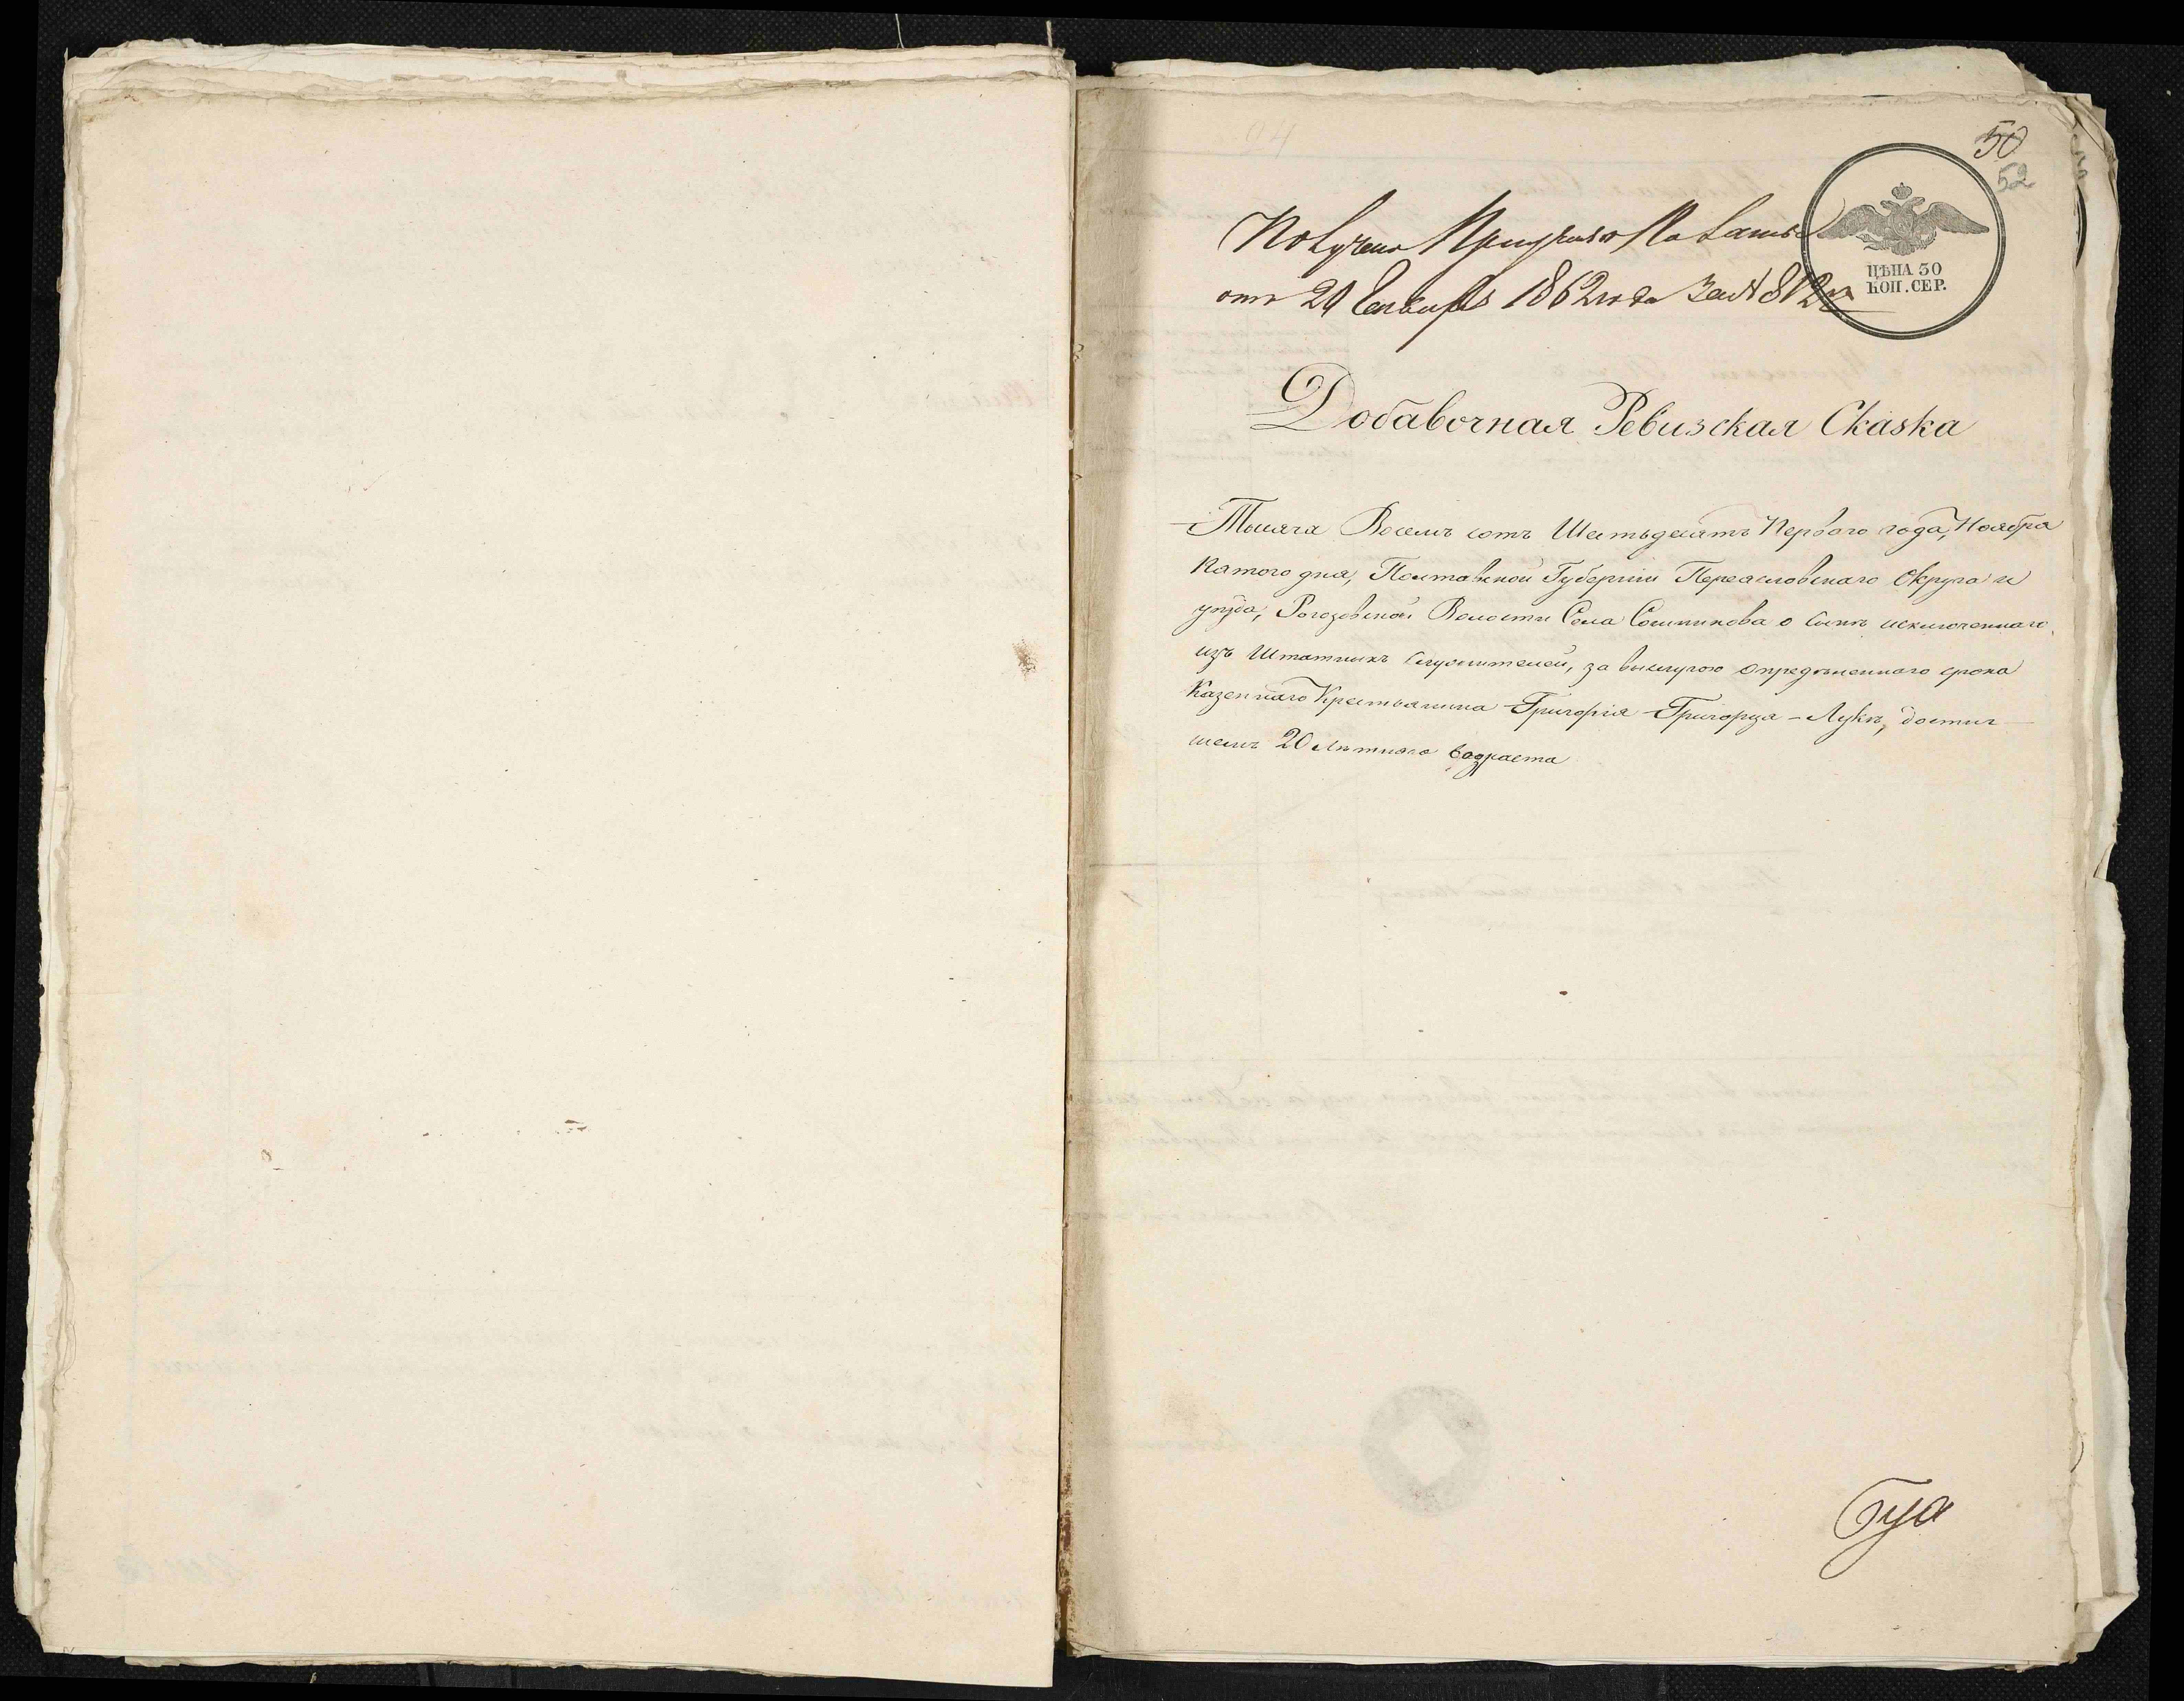 50
52
ЦѢНА 50
КОП. СЕР.
Получено при указѣ Палаты
отъ 20 Генваря 1862 года за №
Добавочная Ревизская Сказка
Тысяча Восемь сотъ Шестьдесятъ Перваго года, Ноября
Пятого дня, Полтавской Губерніи Переясловскаго Округа и
уѣзда, Рогозовской Волости Села Сошникова о сынѣ исключеннаго
изъ Штатныхъ служителей, за выслугою опредѣленнаго срока
Казеннаго Крестьянина Григорія Григорца – Лукѣ, достиг
шемъ 20 лѣтняго возраста